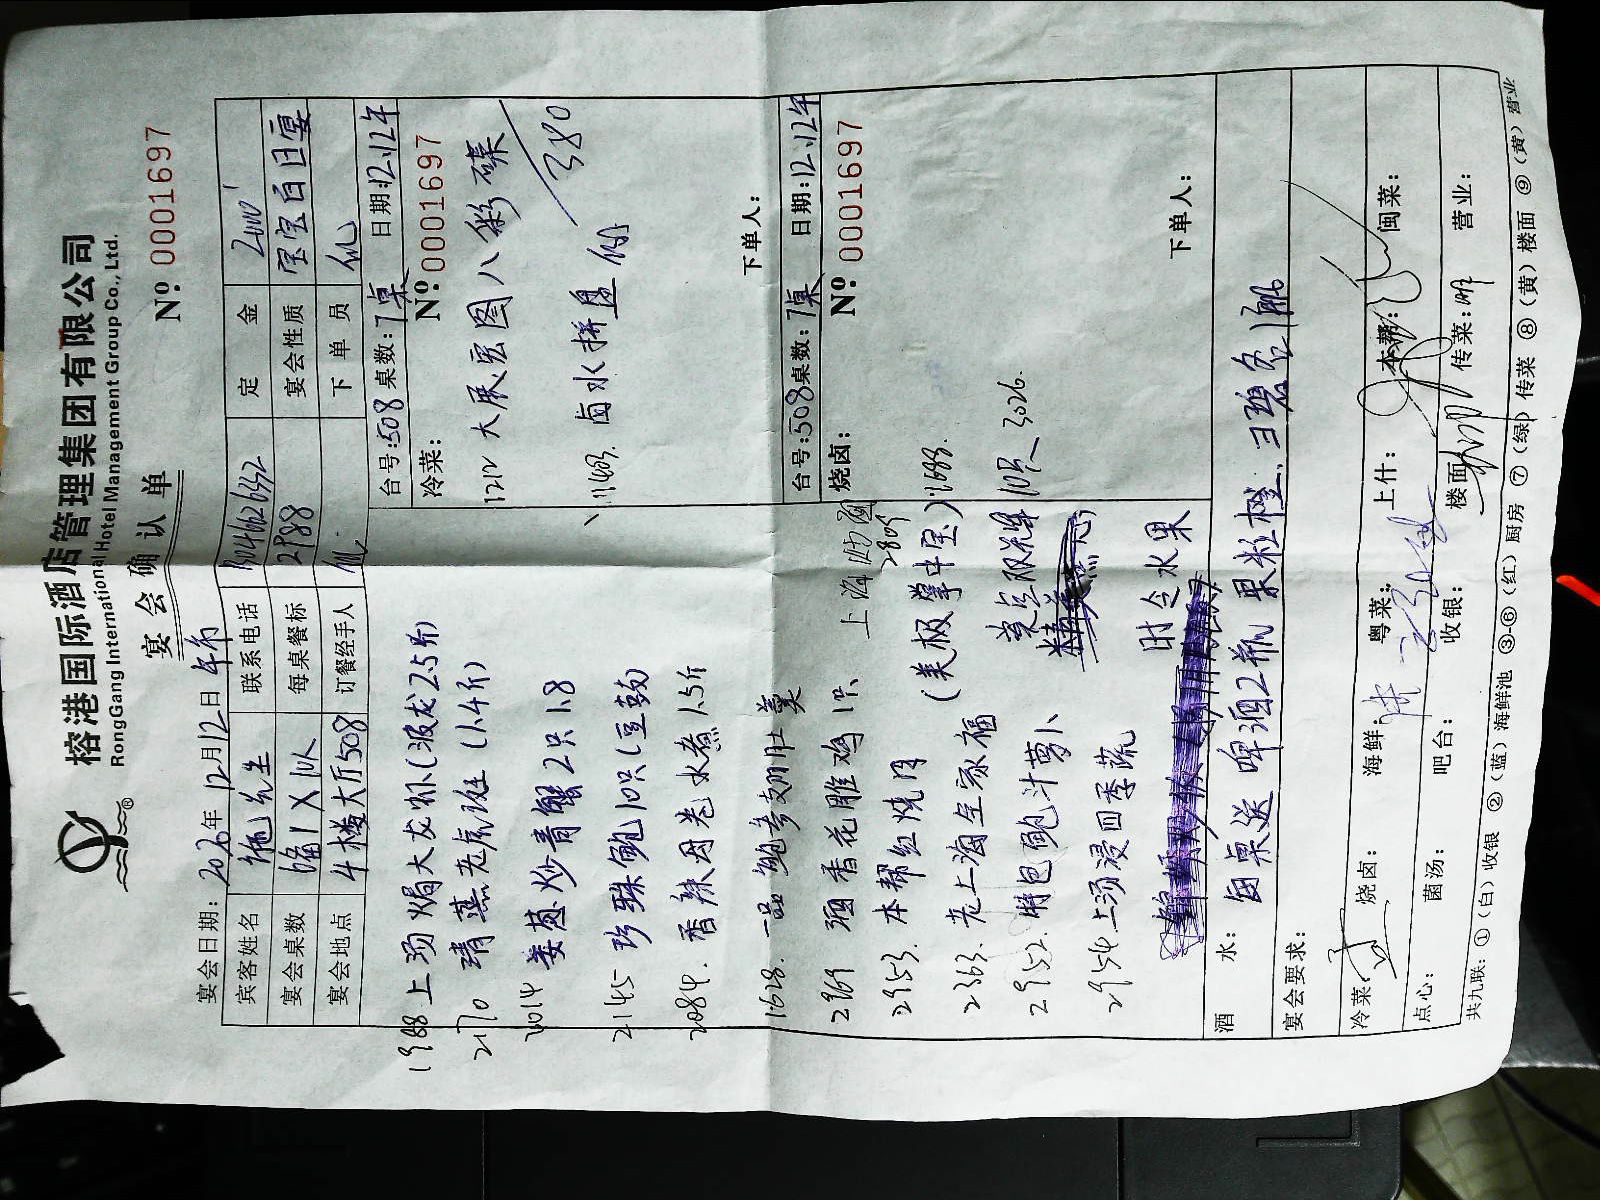 榕港国际酒店管理集团有限公司
RongGang International Hotel Management Group Co., Ltd.
宴会确认单
Nº: 0001697
宴会日期: 2020年12月12日
宾客姓名 先生 联系电话 定金 2000
宴会桌数 10人 每桌餐标 2988 宴会性质 宝宝百日宴
宴会地点 4楼大厅508 订餐经手人 下单员
台号:508 桌数:7桌 日期:12.12午
冷菜: Nº: 0001697
1212 大展宏图八彩碟
380
卤水拼盘
下单人:
台号:508 桌数:7桌 日期:12.12午
烧卤: Nº: 0001697
下单人:
1988 上汤焗大龙虾(波龙2.5斤)
2170 清蒸老虎斑(1.4斤)
2014 姜葱炒青蟹2只1.8
2145 珍珠鲍10只(豆豉)
2084. 香辣丹卷水煮1.5斤
1628. 一品鲍参翅肚羹
2969 酒香花雕鸡1只 上海
2953. 本帮红烧肉
2363. 老上海全家福(美极掌中宝)
2952. 特色鲍汁萝卜 美点双辉 10只 3026.
2954 上汤浸四季蔬
时令水果
酒水: 每桌送啤酒2瓶 果粒橙
宴会要求:
冷菜: 烧卤: 海鲜: 粤菜: 上什: 本帮: 闽菜:
点心: 菌汤: 吧台: 收银: 楼面: 传菜: 营业:
共九联: ①(白)收银 ②(蓝)海鲜池 ③-⑥(红)厨房 ⑦(绿)传菜 ⑧(黄)楼面 ⑨(黄)营业